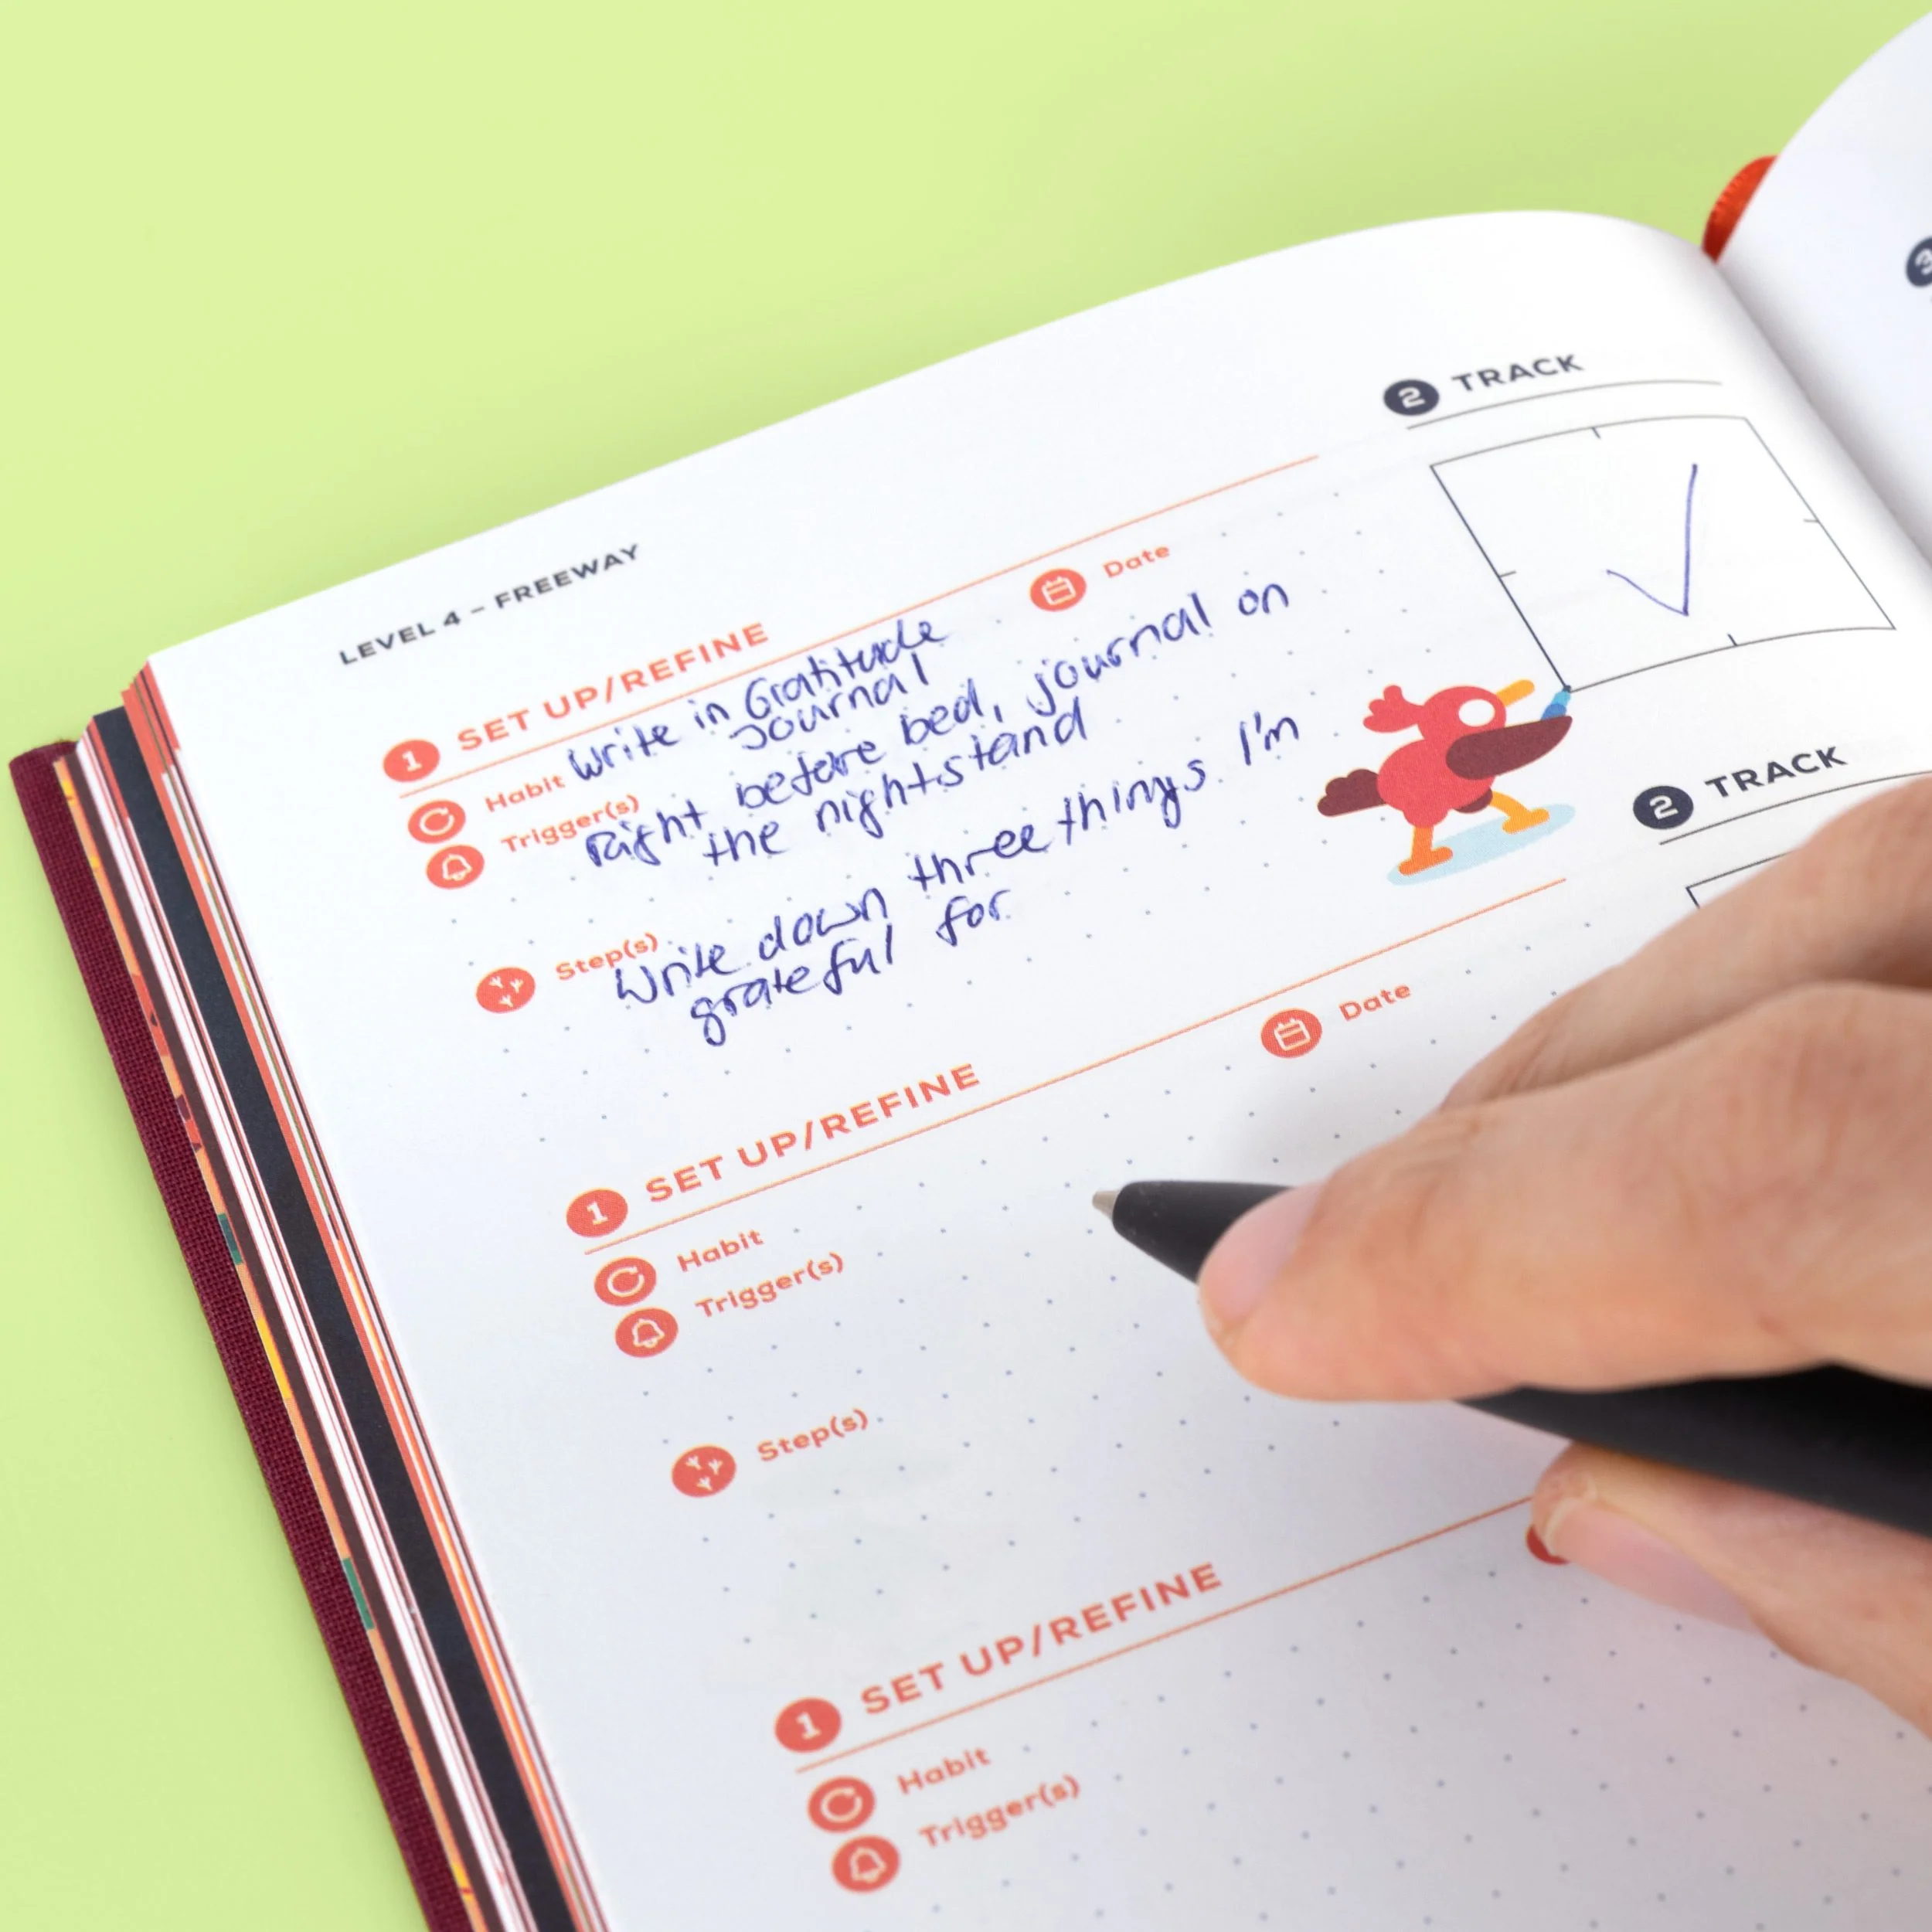 LEVEL 4 – FREEWAY
1 SET UP/REFINE
Date
Habit Write in Gratitude
Journal
Trigger(s)
Right before bed, journal on
the nightstand
Step(s)
Write down three things I'm
grateful for
2 TRACK
1 SET UP/REFINE
Date
Habit
Trigger(s)
Step(s)
2 TRACK
1 SET UP/REFINE
Habit
Trigger(s)
3